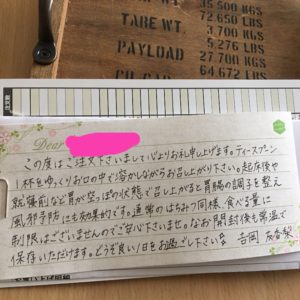 35.500 KGS
72.650 LBS
TARE WT. 3.700 KGS
5.276 LBS
PAYLOAD 27.700 KGS
64.672 LBS
Dear
この度はご注文下さいまして心よりお礼申し上げます。ティースプーン
1杯をゆっくりお口の中で溶かしながらお召し上がり下さい。起床後や
就寝前など胃が空っぽの状態で召し上がると胃腸の調子を整え
風邪予防にも効果的です。通常のはちみつ同様、食べる量に
制限はございませんのでご安心下さいませ。なお開封後も常温で
保存いただけます。どうぞ良い1日をお過ごし下さい
吉岡